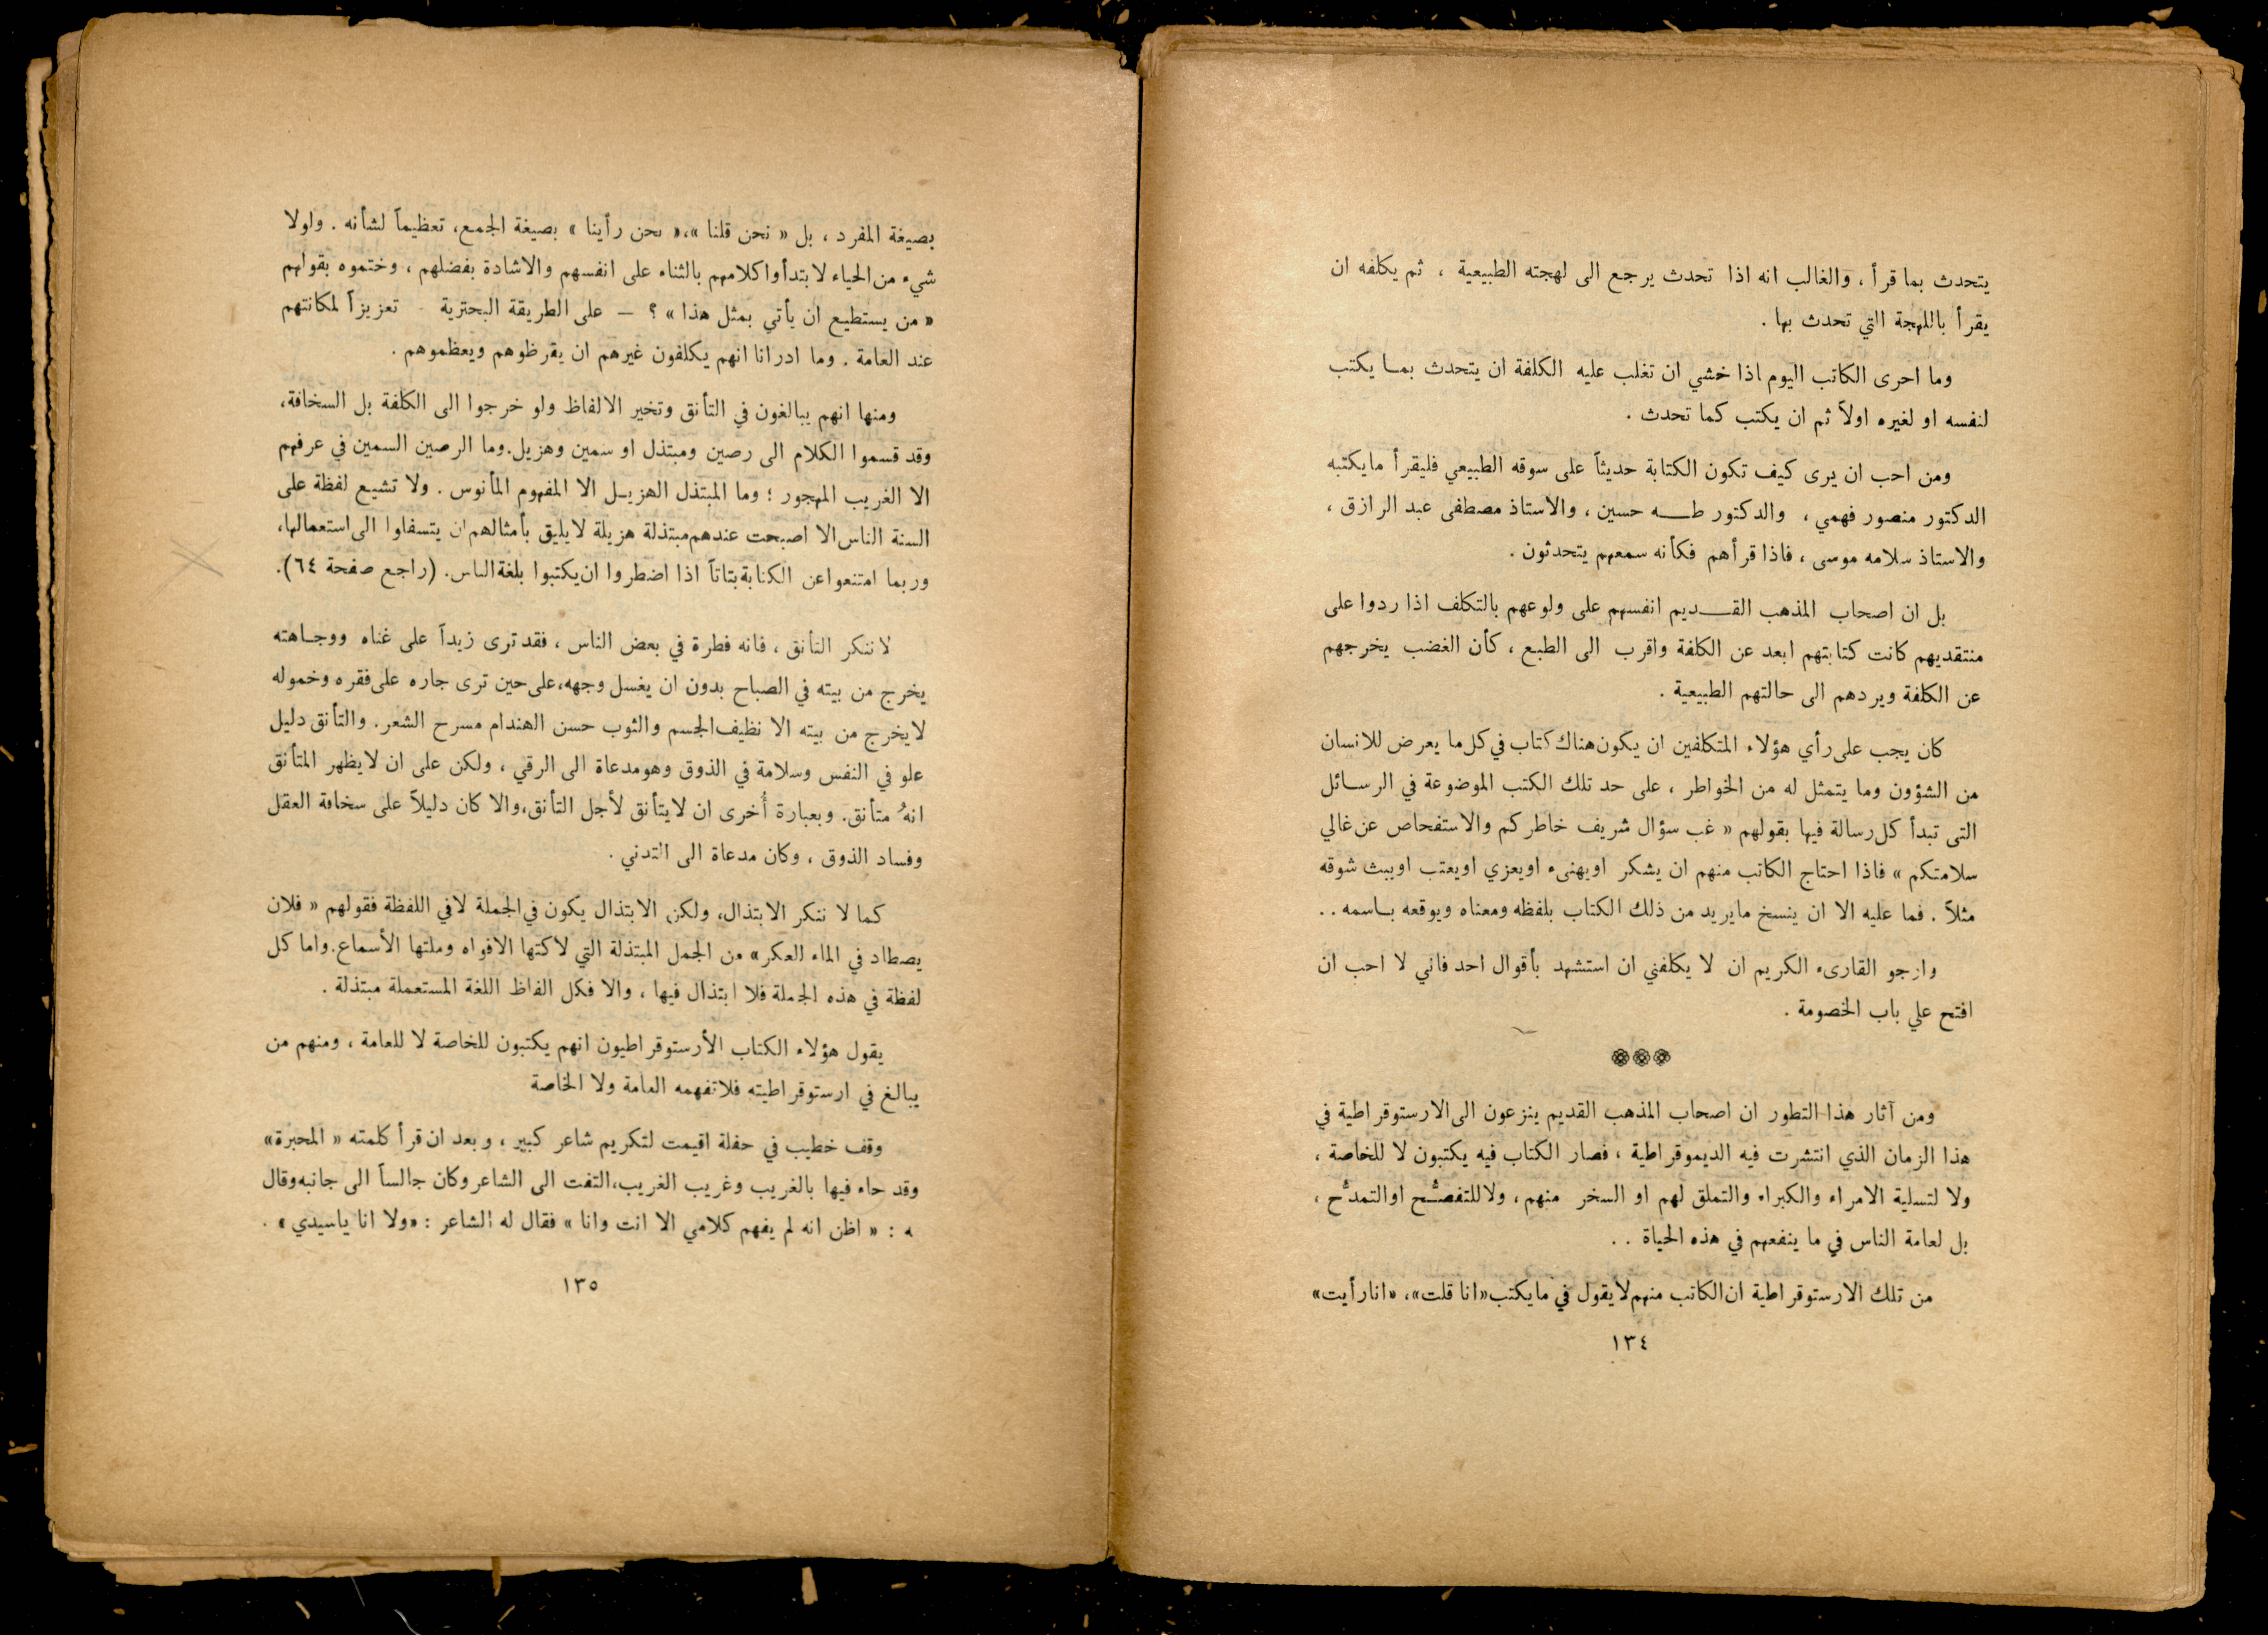 يتحدث بما قرأ ، والغالب انه اذا تحدث يرجع الى لهجته الطبيعية ، ثم يكلفه ان
يقرأ باللهجة التي تحدث بها .
وما احرى الكاتب اليوم اذا خشي ان تغلب عليه الكلفة ان يتحدث بما يكتب
لنفسه او لغيره اولاً ثم ان يكتب كما تحدث .
ومن احب ان يرى كيف تكون الكتابة حديثاً على سوقه الطبيعي فليقرأ ما يكتبه
الدكتور منصور فهمي ، والدكتور طه حسين ، والاستاذ مصطفى عبد الرازق ،
والاستاذ سلامه موسى ، فاذا قرأهم فكأنه سمعهم يتحدثون .
بل ان اصحاب المذهب القديم انفسهم على ولوعهم بالتكلف اذا ردوا على
منتقديهم كانت كتابتهم ابعد عن الكلفة واقرب الى الطبع ، كأن الغضب يخرجهم
عن الكلفة ويردهم الى حالتهم الطبيعية .
كان يجب على رأي هؤلاء المتكلفين ان يكون هناك كتاب في كل ما يعرض للانسان
من الشؤون وما يتمثل له من الخواطر ، على حد تلك الكتب الموضوعة في الرسائل
التى تبدأ كل رسالة فيها بقولهم « غب سؤال شريف خاطركم والاستفحاص عن غالي
سلامتكم » فاذا احتاج الكاتب منهم ان يشكر او يهنىء او يعزي او يعتب او يبث شوقه
مثلاً . فما عليه الا ان ينسخ ما يريد من ذلك الكتاب بلفظه ومعناه ويوقعه باسمه . .
وارجو القارىء الكريم ان لا يكلفني ان استشهد بأقوال احد فاني لا احب ان
افتح علي باب الخصومة .
***
ومن آثار هذا التطور ان اصحاب المذهب القديم ينزعون الى الارستوقراطية في
هذا الزمان الذي انتشرت فيه الديموقراطية ، فصار الكتاب فيه يكتبون لا للخاصة ،
ولا لتسلية الامراء والكبراء والتملق لهم او السخر منهم ، ولا للتفصُّح او التمدُّح ،
بل لعامة الناس في ما ينفعهم في هذه الحياة . .
من تلك الارستوقراطية ان الكاتب منهم لا يقول في ما يكتب «انا قلت» ، «انا رأيت»
١٣٤
بصيغة المفرد ، بل « نحن قلنا »،« نحن رأينا » بصيغة الجمع ، تعظيماً لشأنه . ولولا
شيء من الحياء لابتدأوا كلامهم بالثناء على انفسهم والاشادة بفضلهم ، وختموه بقولهم
« من يستطيع ان يأتي بمثل هذا » ؟ — على الطريقة البحترية - تعزيزاً لمكانتهم
عند العامة . وما ادرانا انهم يكلفون غيرهم ان يقرظوهم ويعظموهم .
ومنها انهم يبالغون في التأنق وتخير الالفاظ ولو خرجوا الى الكلفة بل السخافة ،
وقد قسموا الكلام الى رصين ومبتذل او سمين وهزيل . وما الرصين السمين في عرفهم
الا الغريب المهجور ؛ وما المبتذل الهزيل الا المفهوم المأنوس . ولا تشيع لفظة على
السنة الناس الا اصبحت عندهم مبتذلة هزيلة لا يليق بأمثالهم ان يتسفلوا الى استعمالها ،
وربما امتنعوا عن الكتابة بتاتاً اذا اضطروا ان يكتبوا بلغة الناس . (راجع صفحة ٦٤) .
لا ننكر التأنق ، فانه فطرة في بعض الناس ، فقد ترى زيداً على غناه ووجاهته
يخرج من بيته في الصباح بدون ان يغسل وجهه ، على حين ترى جاره على فقره وخموله
لا يخرج من بيته الا نظيف الجسم والثوب حسن الهندام مسرح الشعر . والتأنق دليل
علو في النفس وسلامة في الذوق وهو مدعاة الى الرقي ، ولكن على ان لا يظهر المتأنق
انهُ متأنق . وبعبارة أُخرى ان لا يتأنق لأجل التأنق ، والا كان دليلاً على سخافة العقل
وفساد الذوق ، وكان مدعاة الى التدني .
كما لا ننكر الابتذال ، ولكن الابتذال يكون في الجملة لا في اللفظة فقولهم « فلان
يصطاد في الماء العكر » من الجمل المبتذلة التي لاكتها الافواه وملتها الأسماع . واما كل
لفظة في هذه الجملة فلا ابتذال فيها ، والا فكل الفاظ اللغة المستعملة مبتذلة .
يقول هؤلاء الكتاب الأرستوقراطيون انهم يكتبون للخاصة لا للعامة ، ومنهم من
يبالغ في ارستوقراطيته فلا تفهمه العامة ولا الخاصة
وقف خطيب في حفلة اقيمت لتكريم شاعر كبير ، وبعد ان قرأ كلمته « المحبرة »
وقد جاء فيها بالغريب وغريب الغريب ، التفت الى الشاعر وكان جالساً الى جانبه وقال
ه : « اظن انه لم يفهم كلامي الا انت وانا » فقال له الشاعر : «ولا انا ياسيدي» .
١٣٥